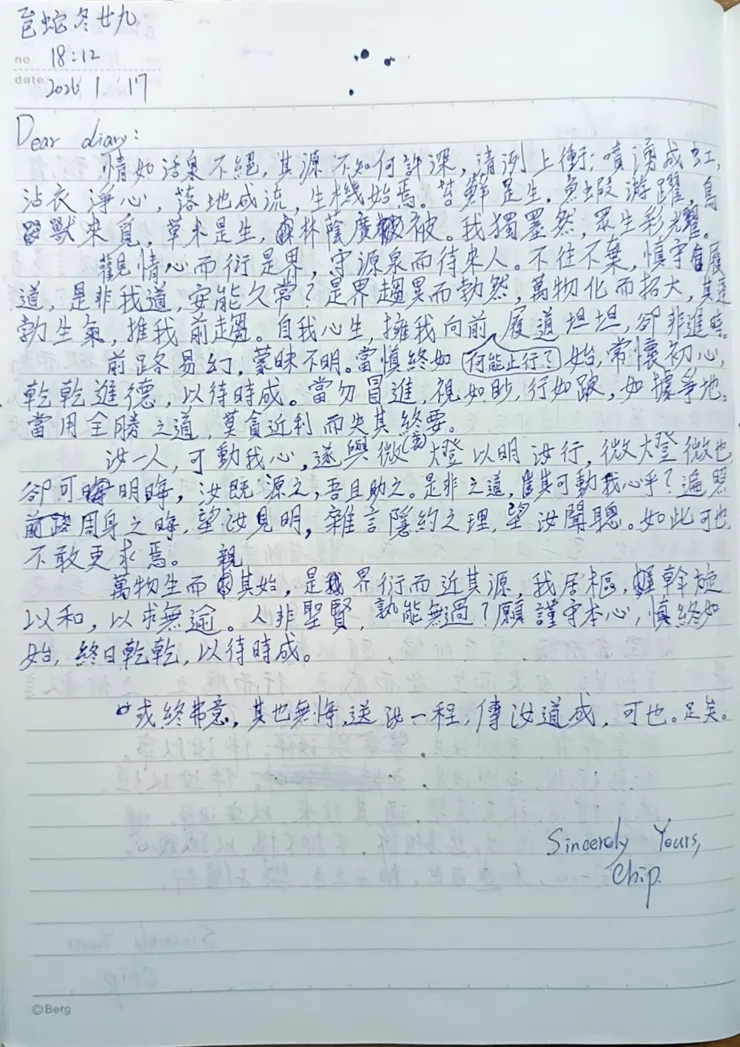 乙巳蛇冬廿九
no. 18:12
date 2026 1 17
Dear diary:
情如活泉不絕,其源不知何許深,清洌上衝;噴湧成虹,
沾衣淨心,落地成流,生機始焉。苔蘚是生,魚蝦游躍,鳥
獸來覓,草木是生,林蔭廣被。我獨墨然,眾生彩耀。
觀情心而衍是界,守源泉而待來人。不住不棄,慎守自履
道,是非我道,安能久常?是界趨異而勃然,萬物化而拓大,其
勃生氣,推我前趨。自我心生,擁我向前,履道坦坦,卻非進時。
前路易幻,蒙昧不明。當慎終如(何能止行?)始,常懷初心,
乾乾進德,以待時成。當勿冒進,視如眇,行如跛,如據爭地。
當用全勝之道,莫貪近利而失其終要。
汝一人,可動我心,遂與微燈以明汝行,微燈微也
卻可明晦,汝既源之,吾且助之。是非之道,其可動我心乎?遍照
周身之晦,望汝見明,雜言隱約之理,望汝聞聰。如此可也
不敢更求焉。
萬物生而親其始,是界衍而近其源,我居樞,斡旋
以和,以求無逾。人非聖賢,孰能無過?願謹守本心,慎終如
始,終日乾乾,以待時成。
或終弗意,其也無悔,送汝一程,傳汝道成,可也。足矣。
Sincerely Yours,
Chip.
©Berg